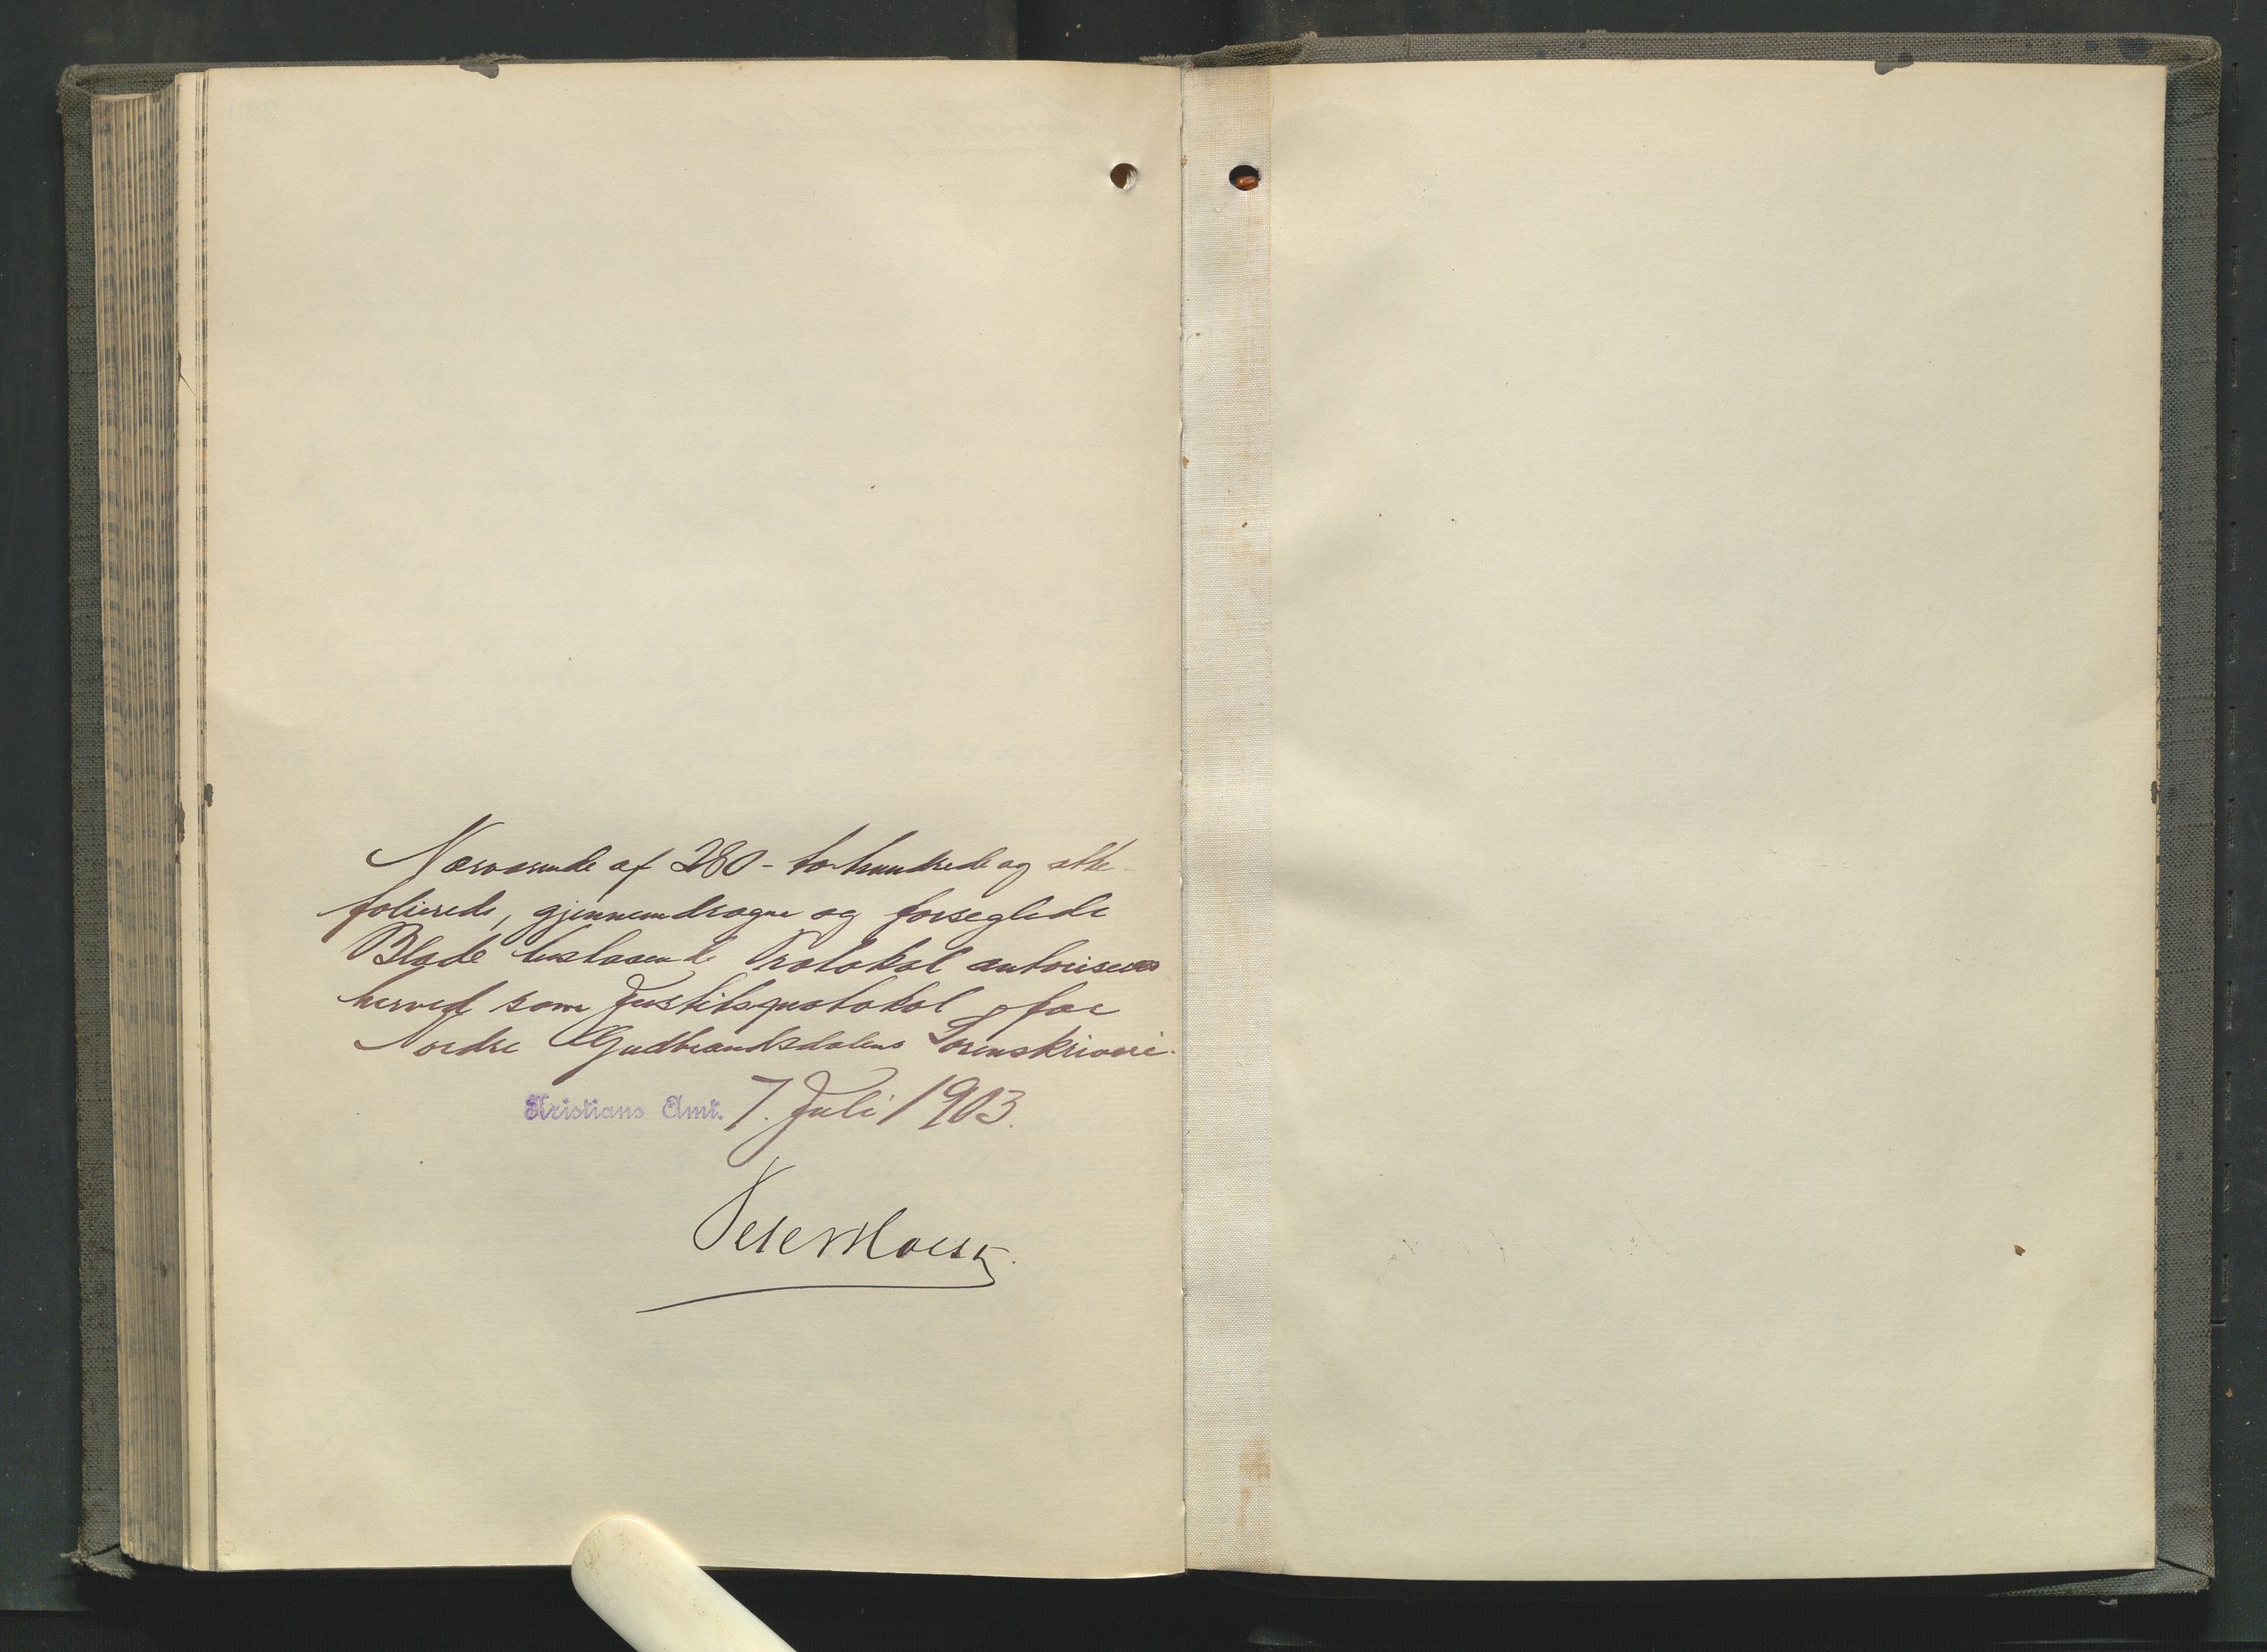 Nærværende af 280 - tohundrede og otte -
folierede, gjennemdragne og forseglede
Blade bestaaende Protokol autoriseres
herved som Justitsprotokol for
Nordre Gudbrandsdalens Sorenskriveri.
Kristians Amt. 7. Juli 1903.